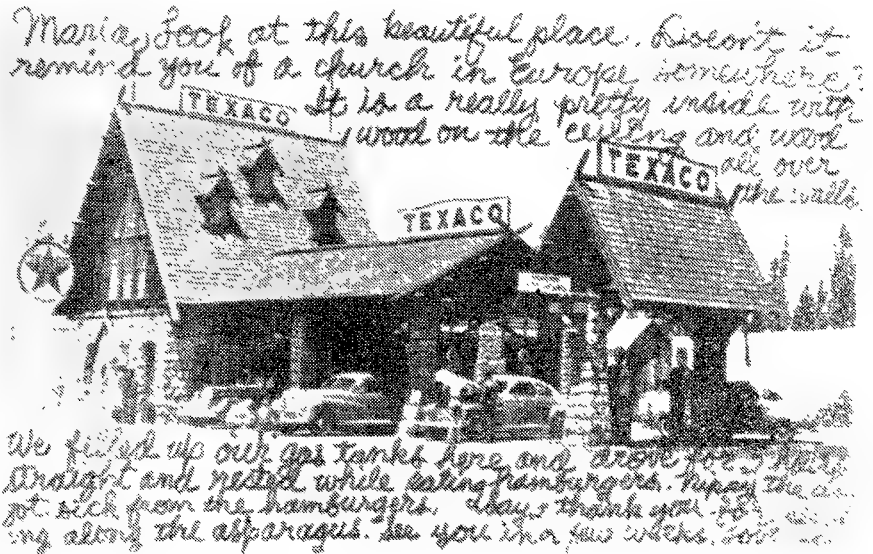 Maria, Look at this beautiful place. Doesn't it
remind you of a church in Europe somewhere?
It is a really pretty inside with
wood on the ceiling and wood
all over
the walls
TEXACO
TEXACO
TEXACO
We filled up our gas tanks here and drove for
straight and rested while eating hamburgers. Pepsy the
got sick from the hamburgers. says thank you
ing along the asparagus. See you in a few weeks.